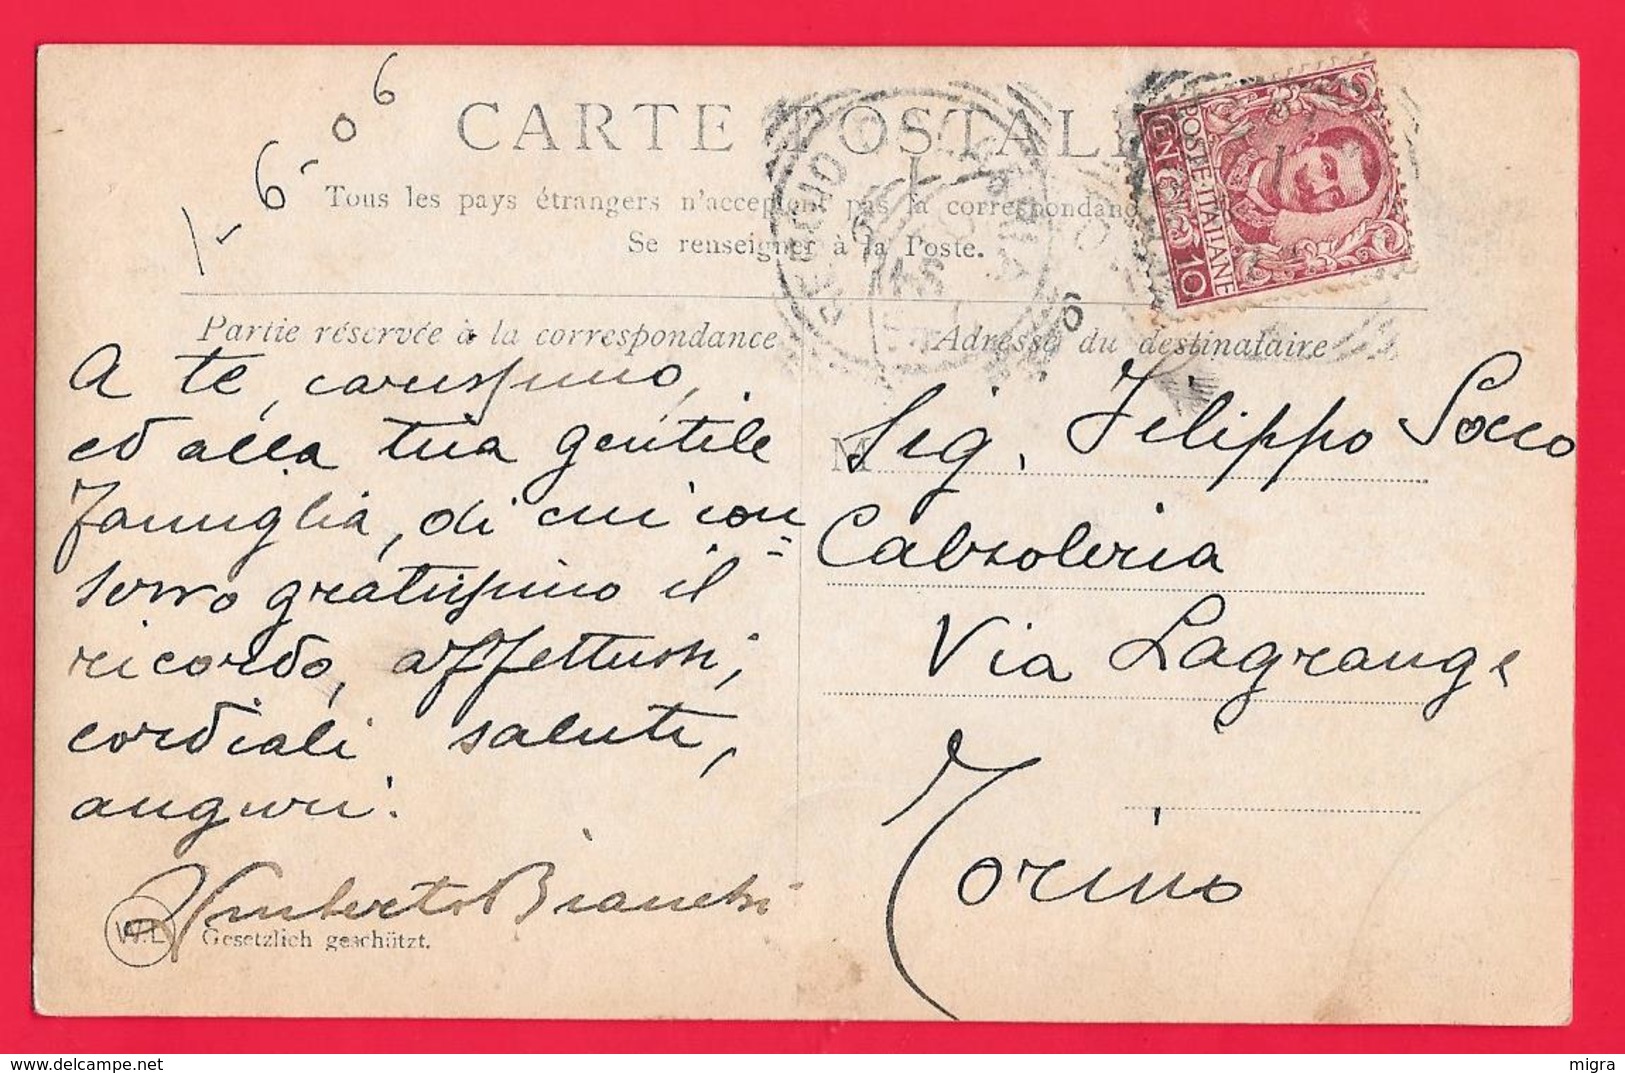 1-6-06
CARTE POSTALE
Tous les pays étrangers n'acceptent pas la correspondanc
Se renseigner à la Poste.
POSTE·ITALIANE
CENT 10
REGGIO
6
Partie réservée à la correspondance
Adresse du destinataire
A te, carissimo,
ed alla tua gentile
famiglia, di cui con=
servo gratissimo il
ricordo, affettuosi,
cordiali saluti,
auguri.
Umberto Bianchi
W.L Gesetzlich geschützt.
M Sig. Filippo Socco
Calzoleria
Via Lagrange
Torino
delcampe.net
migra